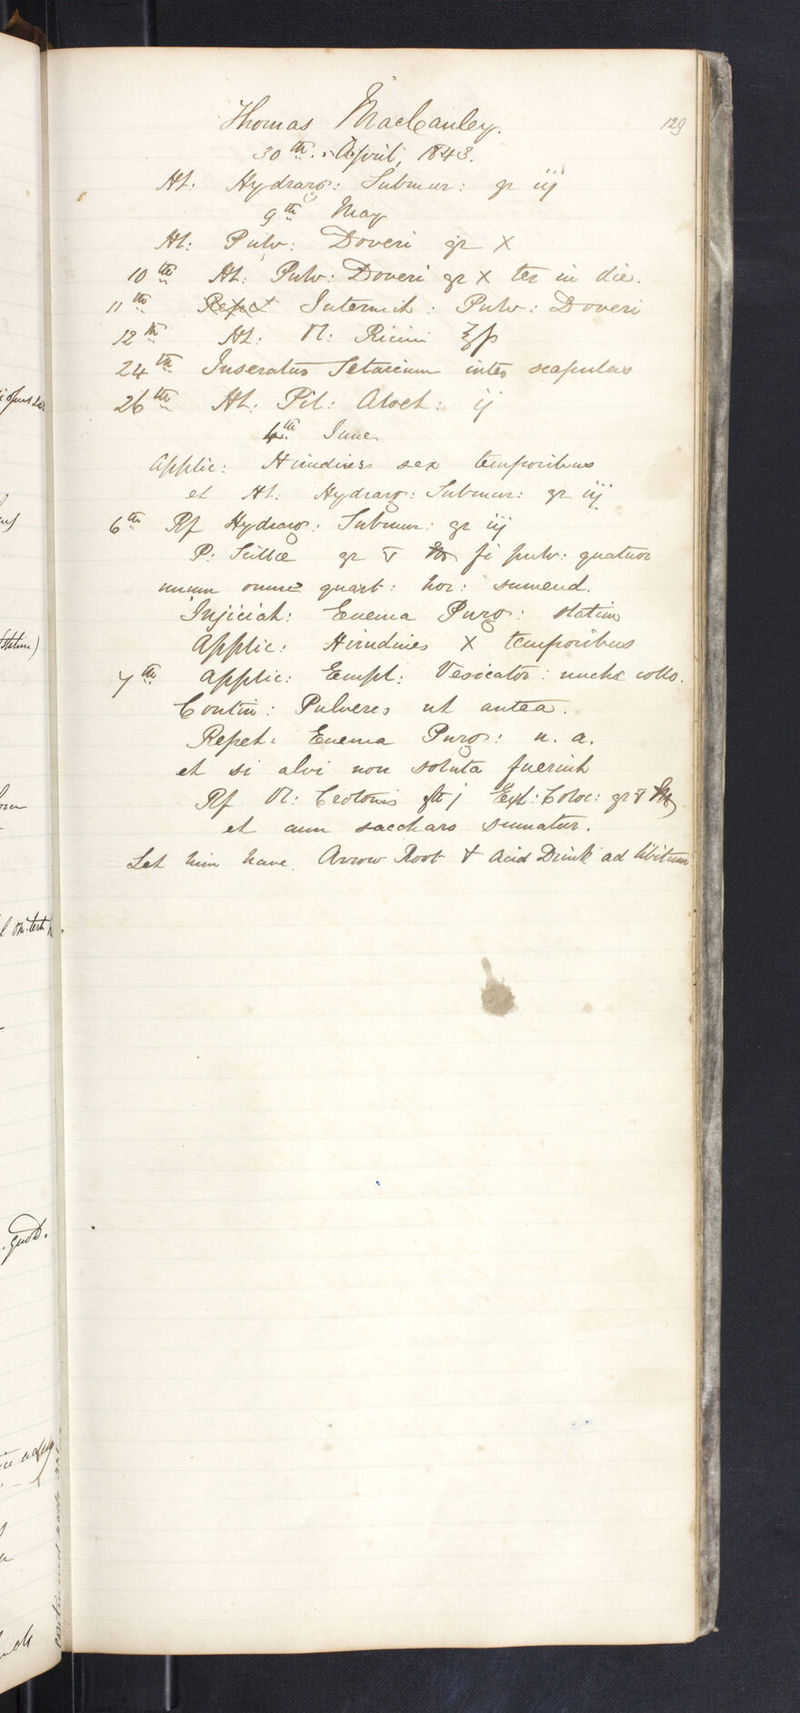 129
Thomas MacCauley.
30th. April, 1843.
Ht: Hydrarg: Submur: gr iij
9th May
Ht: Pulv: Doveri gr X
10th Ht: Pulv: Doveri gr X ter in die.
11th Intermit: Pulv: Doveri
12th Ht: Ol: Ricini ℥ß
24th Inseratur Setaceum inter scapulas
26th Ht: Pil: Aloet: ij
4th June
Applic: Hirudines sex temporibus
et Ht: Hydrarg: Submur: gr iij
6th Rf Hydrarg: Submur: gr iij
P: Scillæ gr v fi pulv: quatuor
unum omne quart: hor: sumend.
Injiciat: Enema Purg: statim
Applic: Hirudines X temporibus
7th Applic: Empl: Vesicator: nucha colli.
Contin: Pulveres ut antea.
Repet: Enema Purg: u. a.
et si alvi non soluta fuerint
Rf Ol: Crotonis gtt j Ext: Coloc: gr v
et cum saccharo sumatur.
Let him have Arrow Root & Acid Drink ad libitum